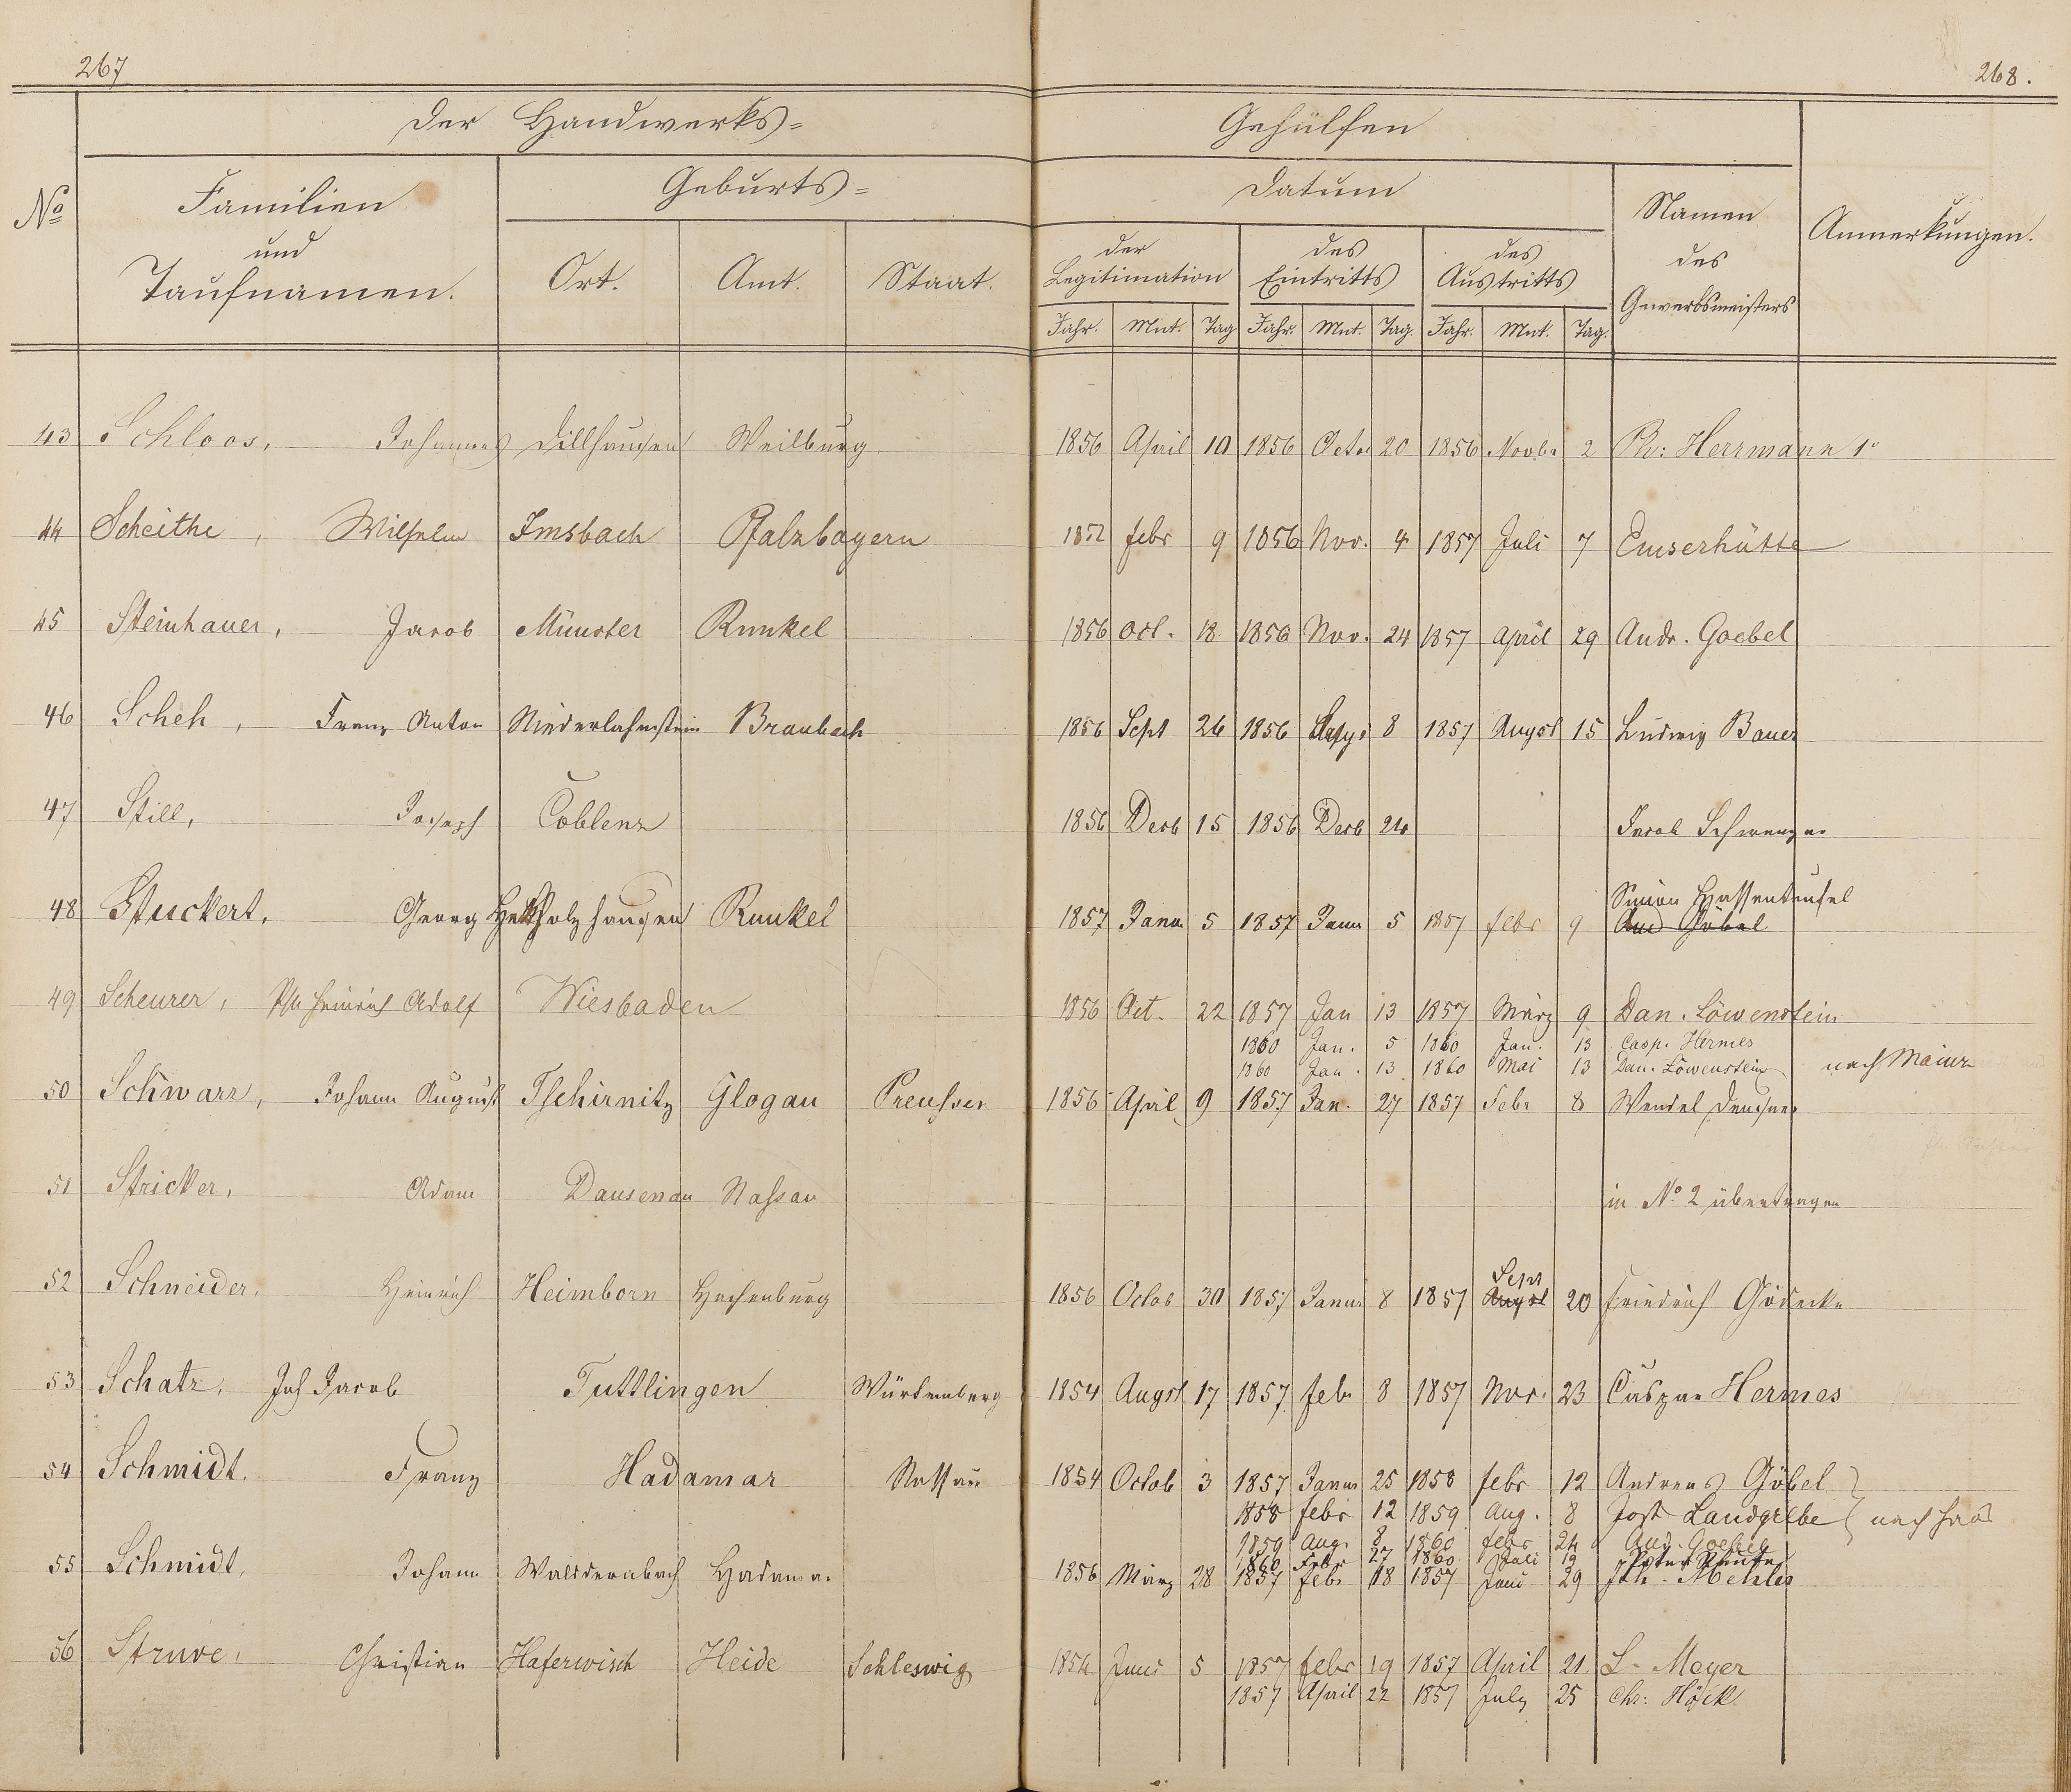 267
268.
Der Handwerks=
Gehülfen
No
Familien und Taufnamen.
Geburts=
Ort.
Amt.
Staat.
Datum
der Legitimation
des Eintritts
des Austritts
Namen des Gewerbsmeisters
Anmerkungen.
Jahr. Mnt. Tag Jahr. Mnt. Tag. Jahr. Mnt. Tag.
43 Schloos, Johannes Dillhausen Weilburg 1856 April 10 1856 Octo 20 1856 Novbr 2 Ph: Herrmann 1r
44 Scheithe, Wilhelm Imsbach Pfalzbayern 1852 febr 9 1856 Nov. 4 1857 Juli 7 Emserhütte
45 Steinhauer, Jacob Münster Runkel 1856 Oct. 18 1856 Nov. 24 1857 April 29 Andr. Goebel
46 Scheh, Franz Anton Niederlahnstein Braubach 1856 Sept 26 1856 8 1857 Augst 15 Ludwig Bauer
47 Still, Joseph Coblenz 1856 Decb 15 1856 Decb 20 Jacob Schwenzer
48 Stuckert, Georg Heckholzhausen Runkel 1857 Janu 5 1857 Janu 5 1857 febr 9 Simon Hassenteufel
And Göbel
49 Scheurer, Ph Heinrich Adolf Wiesbaden 1856 Oct. 22 1857 Jan 13 1857 März 9 Dan. Löwenstein
1860 Jan. 5 1860 Jan. 13 Casp. Hermes
1860 Jan. 13 1860 Mai 13 Dan. Löwenstein nach Mainz
50 Schwarz, Johann August Tschirnitz Glogau Preussen 1856 April 9 1857 Jan. 27 1857 Febr 8 Wendel
51 Stricker, Adam Dausenau Nassau in No 2 übertragen
52 Schneider, Heinrich Heimborn Hachenburg 1856 Octob 30 1857 Janur 8 1857 Sept Augst 20 Friedrich Gödecke
53 Schatz, Joh Jacob Tuttlingen Würtemberg 1854 Augst 17 1857 febr 8 1857 Nov. 23 Caspar Hermes
54 Schmidt, Franz Hadamar Nassau 1854 Octob 3 1857 Janur 25 1858 febr 12 Andreas Göbel
1858 febr 12 1859 Aug. 8 Jost Landgrebe nach Haus
1859 Aug. 8 1860 febr 24 And. Goebel
1860 Febr 27 1860 Juli 19 Peter
55 Schmidt, Johann Walldernbach Hadamar 1856 März 28 1857 febr 18 1857 Juni 29 Joh. Mehler
56 Struve, Christian Haferwisch Heide Schleswig 1854 Juni 5 1857 febr 19 1857 April 21. L. Meyer
1857 April 22 1857 July 25 Chr: Höfik